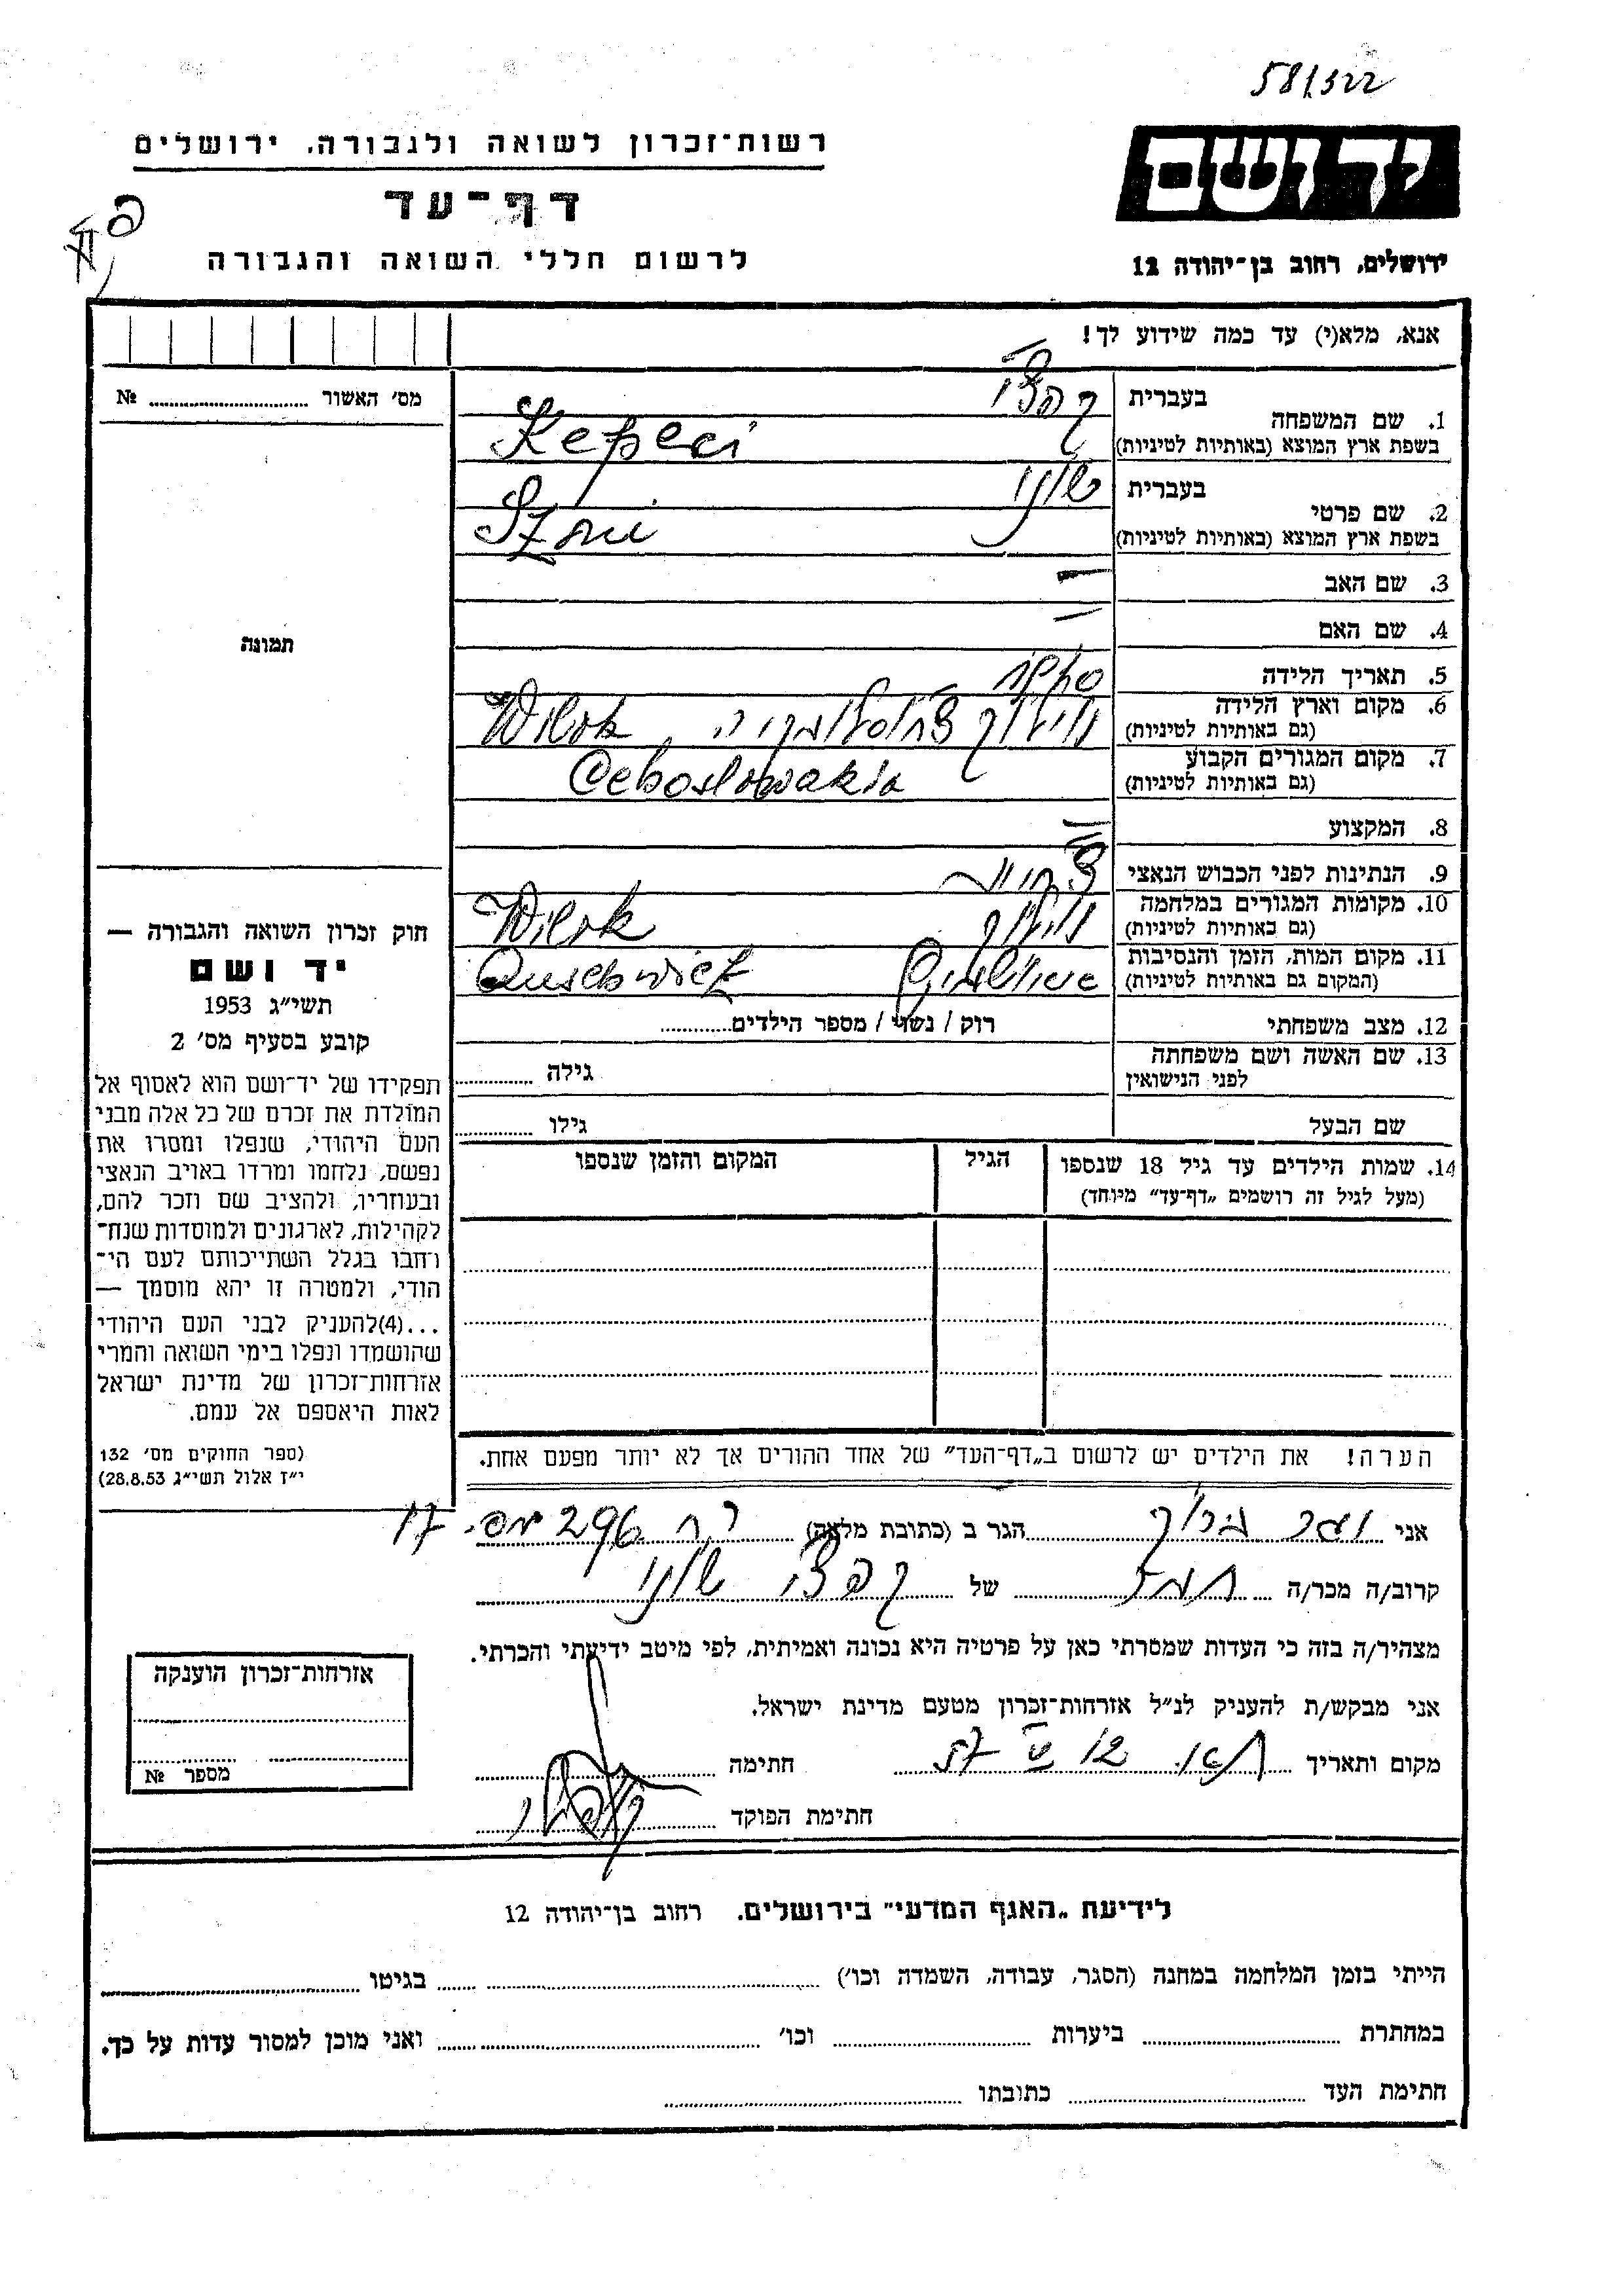 58/322
רשות־זכרון לשואה ולגבורה, ירושלים
יד ושם
דף־עד
לרשום חללי השואה והגבורה
ירושלים, רחוב בן־יהודה 12
אנא, מלא(י) עד כמה שידוע לך!
מס׳ האשור ........ №
1. שם המשפחה
בעברית
בשפת ארץ המוצא (באותיות לטיניות)
Kepeci
2. שם פרטי
בעברית
בשפת ארץ המוצא (באותיות לטיניות)
3. שם האב –
4. שם האם –
תמונה
5. תאריך הלידה
6. מקום וארץ הלידה
(גם באותיות לטיניות)
Wilok
7. מקום המגורים הקבוע
(גם באותיות לטיניות)
Ceboslowakia
8. המקצוע –
9. הנתינות לפני הכבוש הנאצי
10. מקומות המגורים במלחמה
(גם באותיות לטיניות)
Wilok
11. מקום המות, הזמן והנסיבות
(המקום גם באותיות לטיניות)
Auschwicz
12. מצב משפחתי רוק / נשוי / מספר הילדים........
13. שם האשה ושם משפחתה
לפני הנישואין
גילה ........
שם הבעל גילו ........
14. שמות הילדים עד גיל 18 שנספו הגיל המקום והזמן שנספו
(מעל לגיל זה רושמים „דף־עד״ מיוחד)
חוק זכרון השואה והגבורה —
יד ושם
תשי״ג 1953
קובע בסעיף מס׳ 2
תפקידו של יד־ושם הוא לאסוף אל
המולדת את זכרם של כל אלה מבני
העם היהודי, שנפלו ומסרו את
נפשם, נלחמו ומרדו באויב הנאצי
ובעוזריו, ולהציב שם וזכר להם,
לקהילות, לארגונים ולמוסדות שנח־
רחבו בגלל השתייכותם לעם הי־
הודי, ולמטרה זו יהא מוסמך —
...(4)להעניק לבני העם היהודי
שהושמדו ונפלו בימי השואה והמרי
אזרחות־זכרון של מדינת ישראל
לאות היאספם אל עמם.
(ספר החוקים מס׳ 132
י״ז אלול תשי״ג 28.8.53)
הערה! את הילדים יש לרשום ב„דף־העד״ של אחד ההורים אך לא יותר מפעם אחת.
אני ........ הגר ב (כתובת מלאה) ........ 296
קרוב/ה מכר/ה ........ של ........
מצהיר/ה בזה כי העדות שמסרתי כאן על פרטיה היא נכונה ואמיתית, לפי מיטב ידיעתי והכרתי.
אני מבקש/ת להעניק לנ״ל אזרחות־זכרון מטעם מדינת ישראל.
מקום ותאריך ........ חתימה ........
חתימת הפוקד ........
אזרחות־זכרון הוענקה
מספר №
לידיעת „האגף המדעי״ בירושלים. רחוב בן־יהודה 12
הייתי בזמן המלחמה במחנה (הסגר, עבודה, השמדה וכו׳) ........ בגיטו ........
במחתרת ........ ביערות ........ וכו׳ ........ ואני מוכן למסור עדות על כך.
חתימת העד ........ כתובתו ........